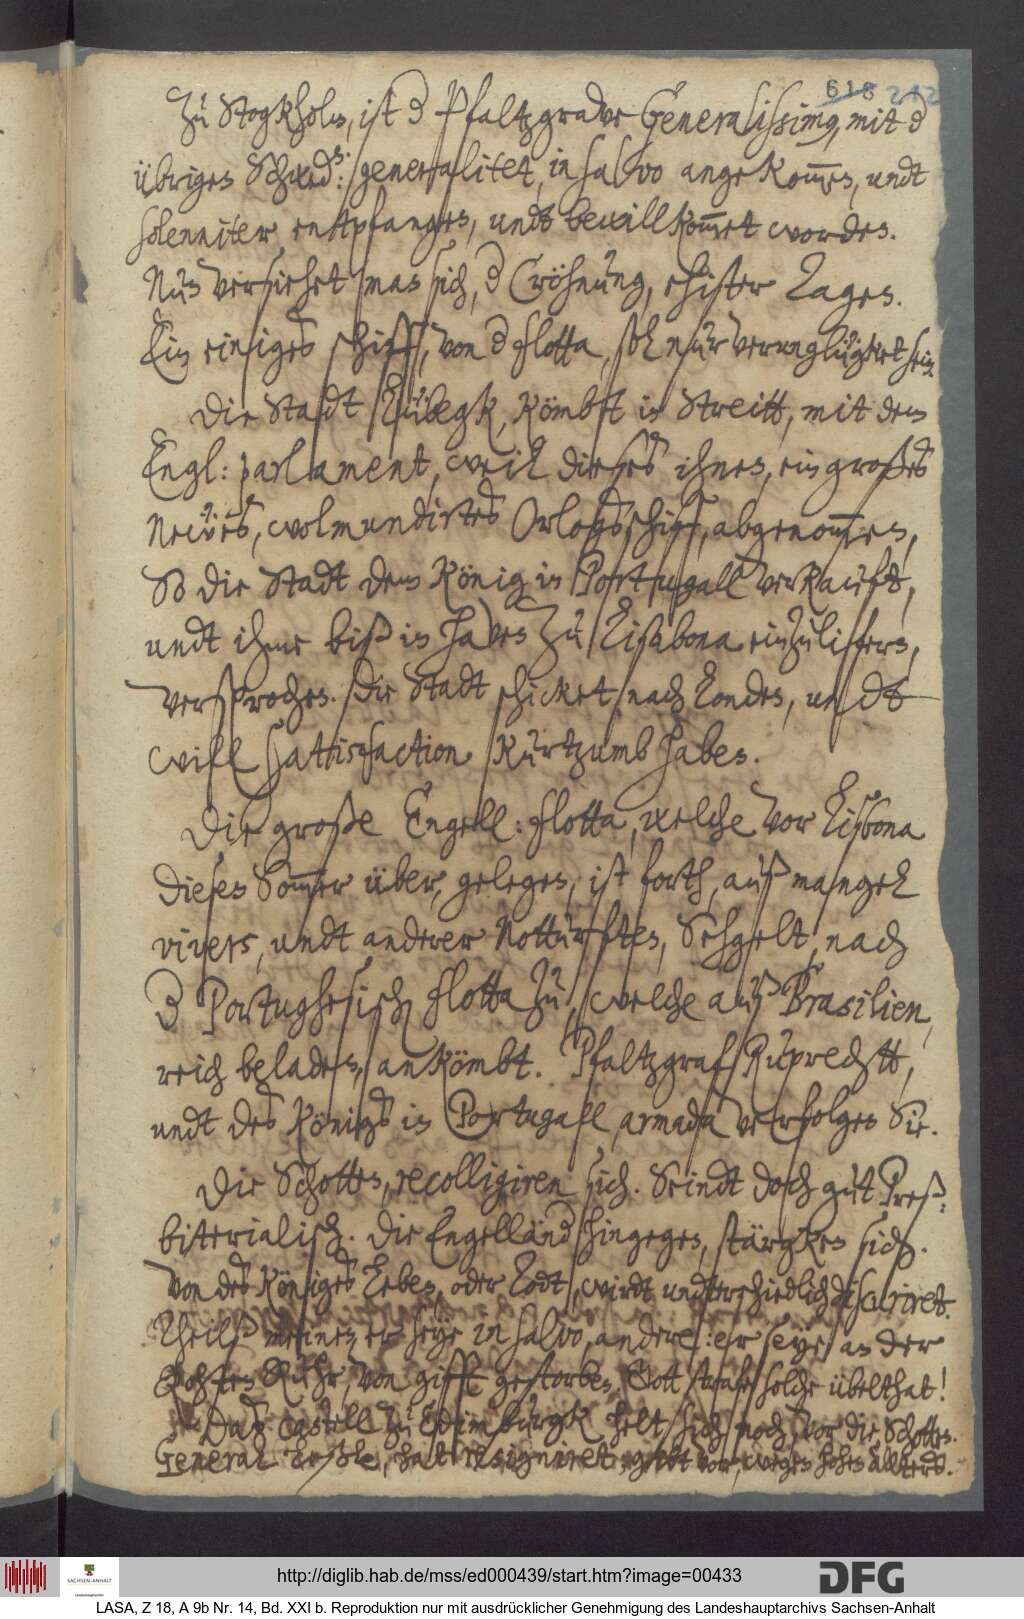 618 242
Zu Stogkholm, ist d Pfaltzgrave Generalissimg, mit d
übrigen Schwed: generalitet, in salvo angekom̅en, undt
solenniter entpfangen, undt bewillkom̅et worden.
Nun versiehet man sich, d Cröhnung, ehister Tagen.
Ein einiges schiff, von d flotta, soll nur verunglügket sein.
Die Stadt Lübegk, kömbt in Streitt, mit dem
Engl: parlament, weil dieses ihnen, ein großes
Newes, wolmundirtes Orlogsschiff, abgenom̅en,
So die Stadt dem König in Portugall verkauft,
undt ihme biß in haven zu Lisabona einzuliefern,
versprochen. Die Stadt schicket nach Londen, undt
will sattisfaction kurtzumb haben.
Die große Engell: flotta, welche vor Lisbona
diesen Som̅er über, gelegen, ist forth, auß mangel
vivers, undt anderer Notturften, Sehgelt nach
d Portughesisch flotta zu, welche auß Brasilien,
reich beladen, ankömbt. Pfaltzgraf Ruprechtt,
undt des Königs in Portugall armada verfolgen Sie.
Die Schotten, recolligiren sich. Seindt doch gut Preß-
biterialisch. Die Engelländ hingegen, stärgken sich.
Von des Königes Leben, oder Todt, wirdt undterschiedlich discurriret.
Theilß meinen er seye in salvo, andere: er seye an der
Rohten Ruhr, von gifft gestorben, Gott strafe solche übelthat!
Daß Castell zu Edimburgk helt sich noch, vor die Schotten.
General Leßle, hat resigniret, gibt vor, wegen hohen Alters.
http://diglib.hab.de/mss/ed000439/start.htm?image=00433
SACHSEN-ANHALT
Landeshauptarchiv
DFG
LASA, Z 18, A 9b Nr. 14, Bd. XXI b. Reproduktion nur mit ausdrücklicher Genehmigung des Landeshauptarchivs Sachsen-Anhalt